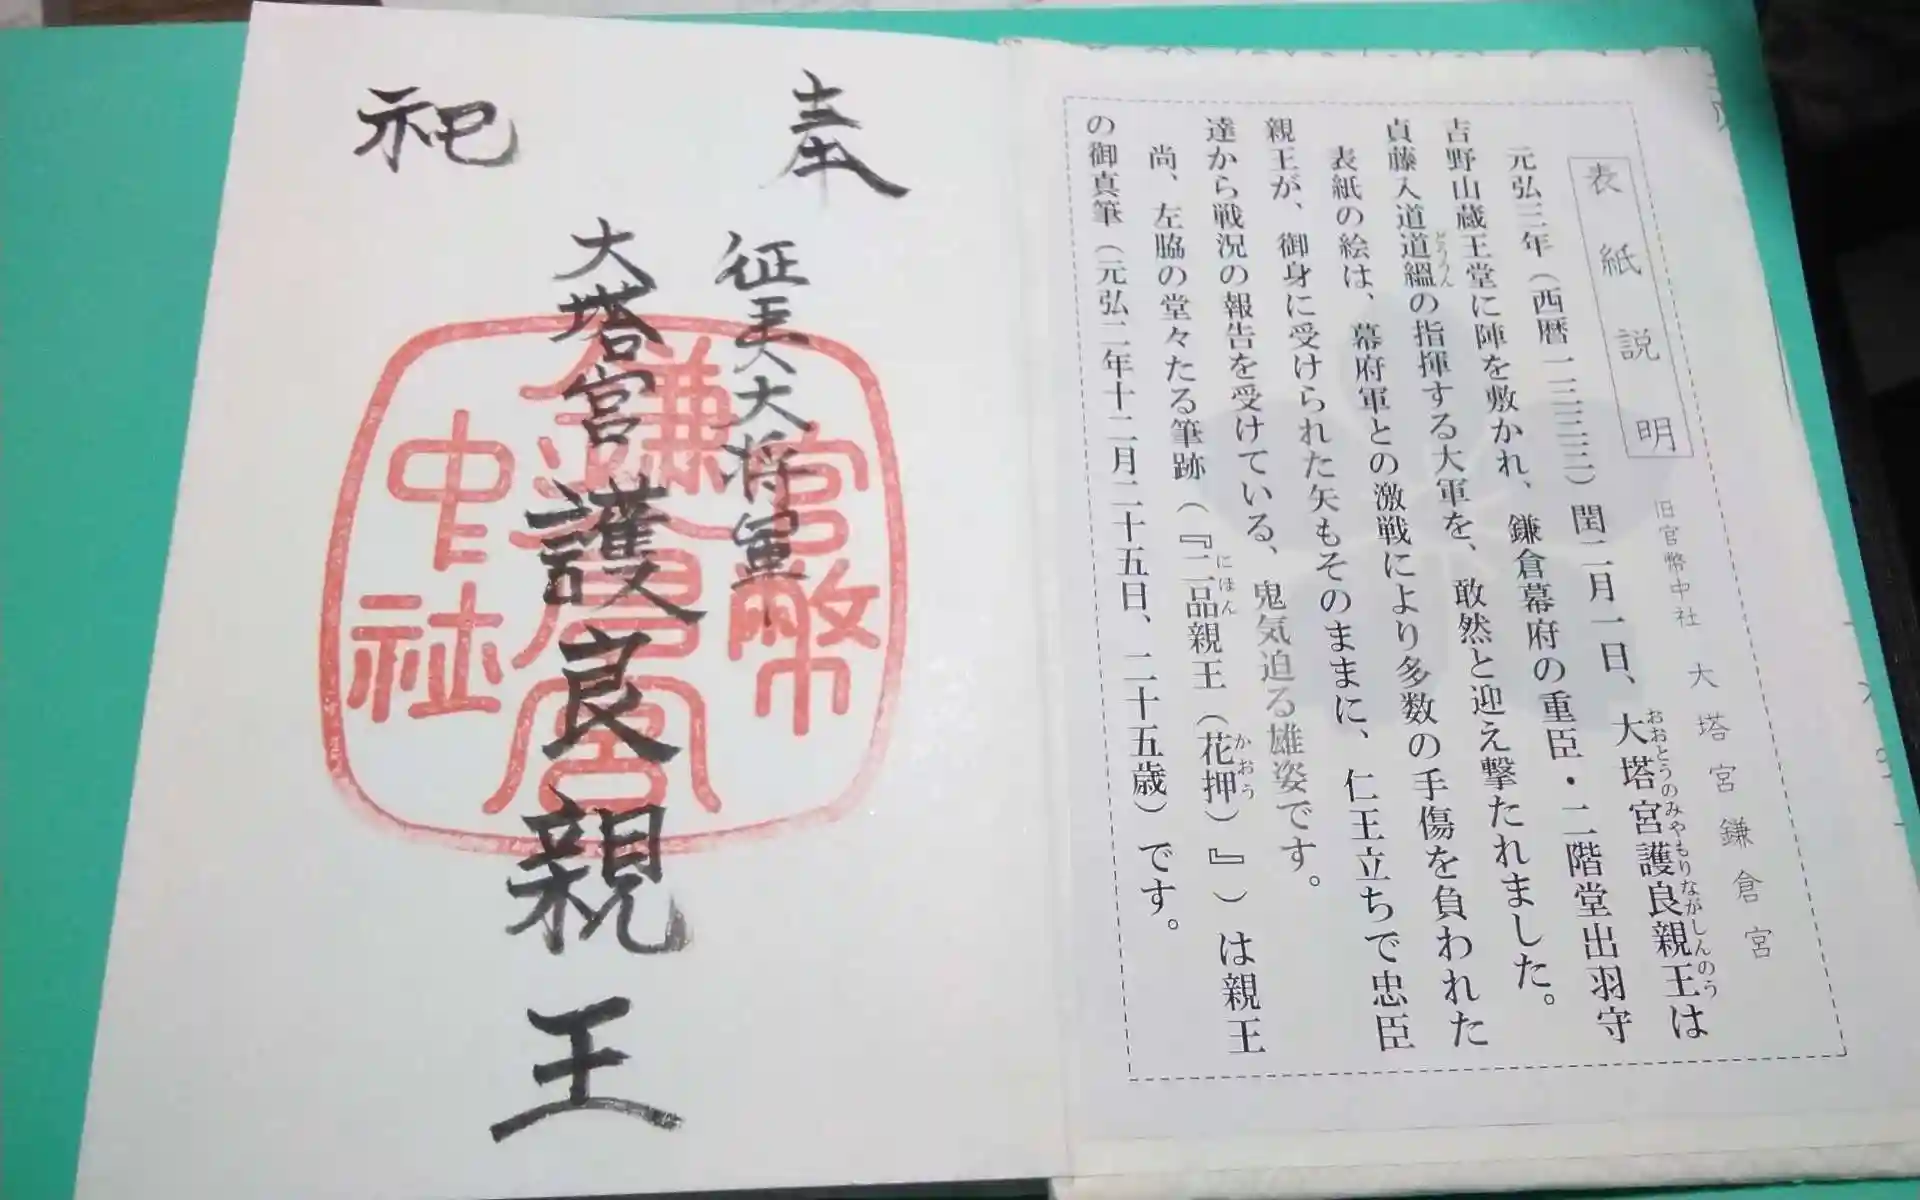 表紙説明
旧官幣中社 大塔宮鎌倉宮
元弘三年(西暦一三三三)閏二月一日、大塔宮護良親王は
おおとうのみやもりながしんのう
吉野山蔵王堂に陣を敷かれ、鎌倉幕府の重臣・二階堂出羽守
貞藤入道道縕の指揮する大軍を、敢然と迎え撃たれました。
どううん
表紙の絵は、幕府軍との激戦により多数の手傷を負われた
親王が、御身に受けられた矢もそのままに、仁王立ちで忠臣
達から戦況の報告を受けている、鬼気迫る雄姿です。
尚、左脇の堂々たる筆跡(『二品親王(花押)』)は親王
にほん
かおう
の御真筆(元弘二年十二月二十五日、二十五歳)です。
奉
祀
征夷大将軍
大塔宮護良親王
官幣
鎌倉宮
中社